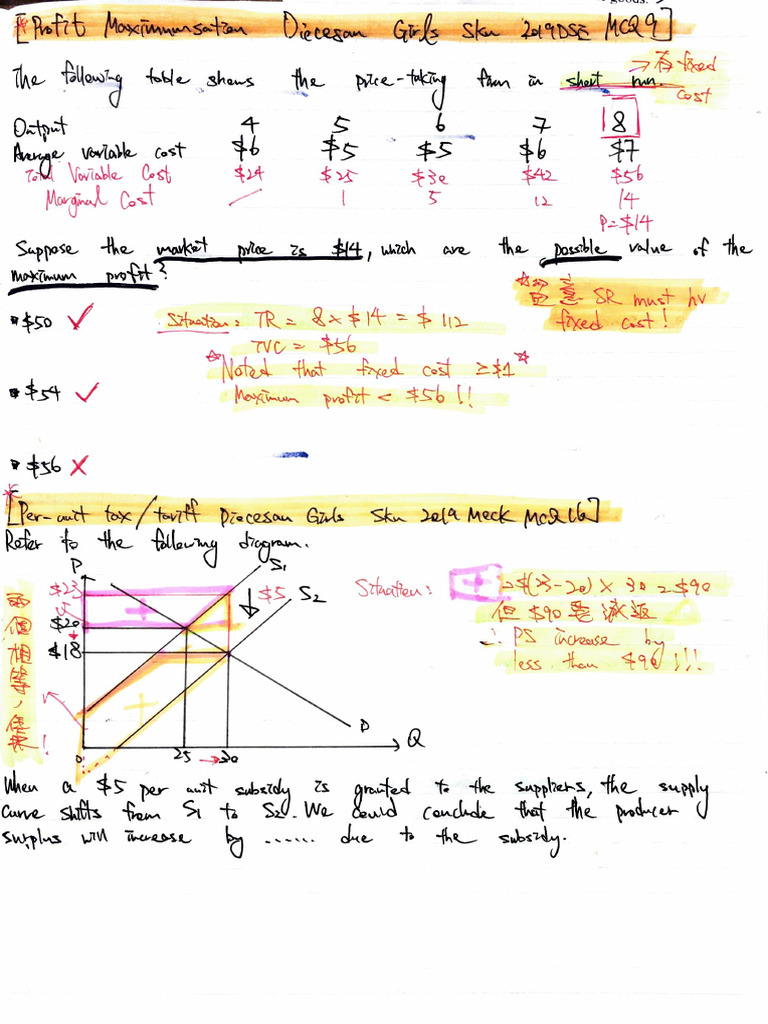 goods.
*[Profit Maximumsation Diecesan Girls Sku 2019DSE MCQ9]
The following table shows the price-taking firm in short run.
→ 有 fixed cost
Output 4 5 6 7 8
Average variable cost $6 $5 $5 $6 $7
Total Variable Cost $24 $25 $30 $42 $56
Marginal Cost 1 5 12 14
P=$14
Suppose the market price is $14, which are the possible value of the
maximum profit?
SR must hv
fixed cost!
$50 ✓ Situation: TR = 8 x $14 = $112
TVC = $56
☆Noted that fixed cost ≥$1☆
$54 ✓ Maximum profit < $56!!
$56 ✗
*[Per-unit tax/tariff Diecesan Girls Sku 2019 Mock MCQ16]
Refer to the following diagram.
P S1
$23 $5 S2
$5 +
$20
$18
+
D
0 25 → 30 Q
兩個相等,
!
Situation: + = $(23-20) x 30 = $90
但 $90 要減返
∴ PS increase by
less than $90!!!
When a $5 per unit subsidy is granted to the suppliers, the supply
curve shifts from S1 to S2. We could conclude that the producer
surplus will increase by ...... due to the subsidy.